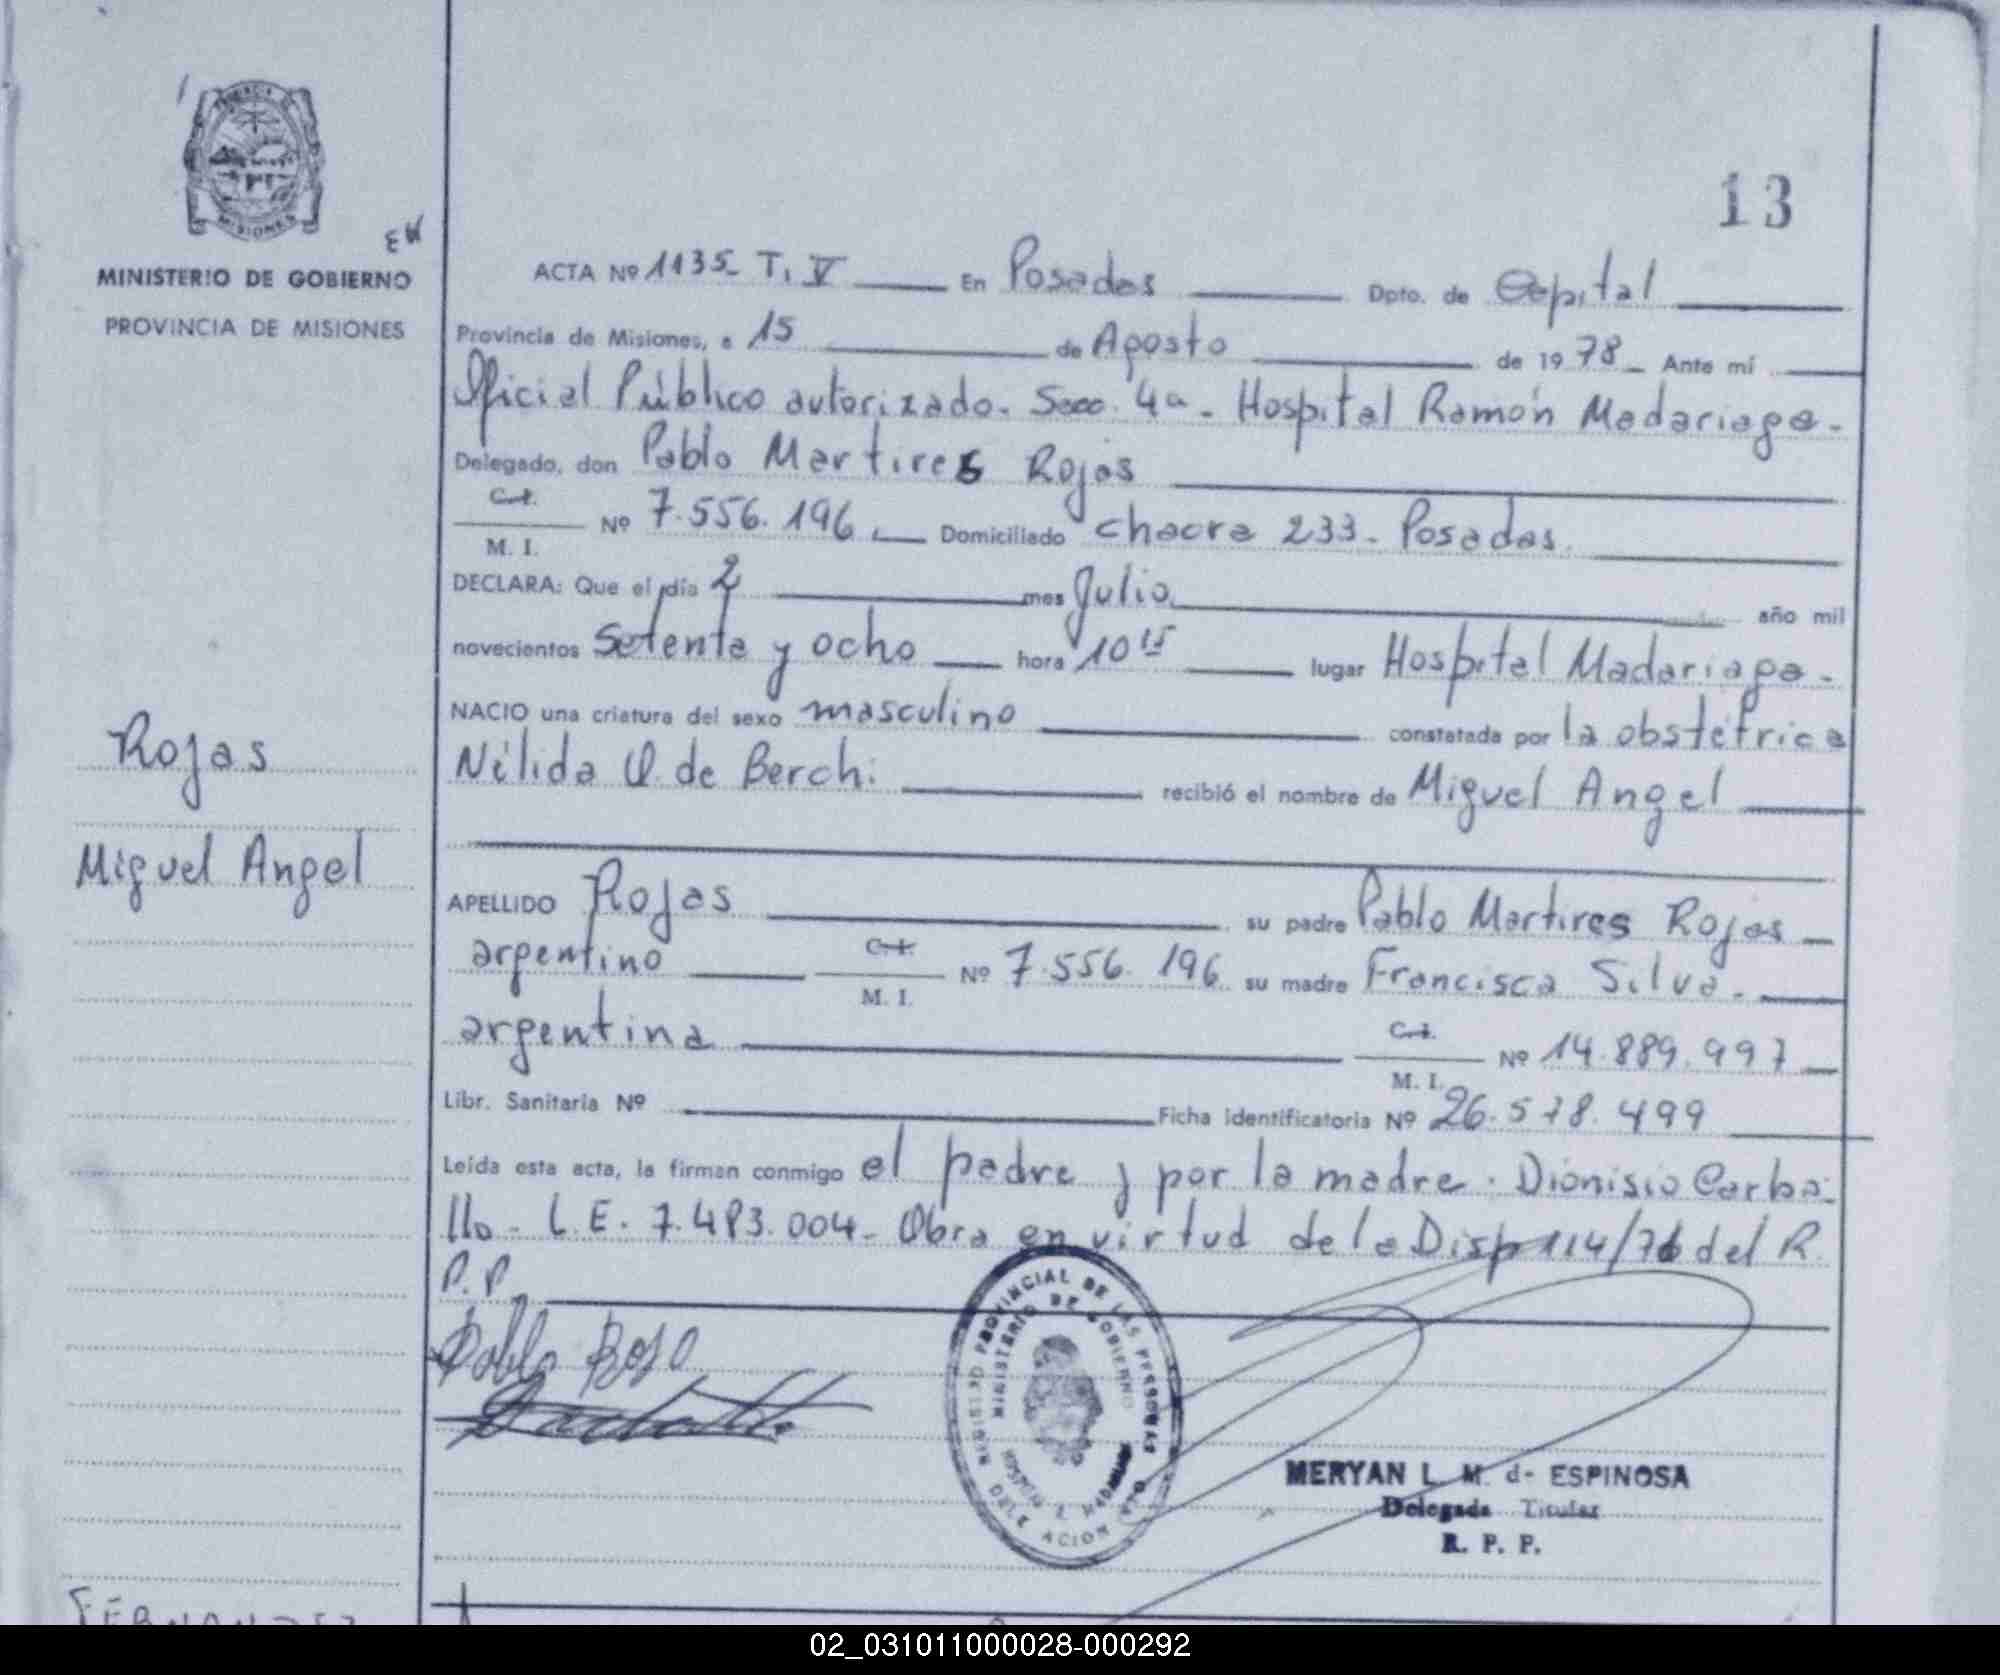 PROVINCIA DE
MISIONES
EW
MINISTERIO DE GOBIERNO
PROVINCIA DE MISIONES
13
ACTA Nº 1135- T. V En Posadas Dpto. de Capital
Provincia de Misiones, a 15 de Agosto de 1978 Ante mí
Oficial Público autorizado. Secc. 4a - Hospital Ramón Madariaga -
Delegado, don Pablo Martires Rojas
C. I.
M. I. Nº 7.556.196 Domiciliado chacra 233 - Posadas.
DECLARA: Que el día 2 mes Julio año mil
novecientos Setenta y ocho hora 10 15 lugar Hospital Madariaga -
NACIO una criatura del sexo masculino constatada por la obstétrica
Nélida de Berch. recibió el nombre de Miguel Angel
Rojas
Miguel Angel
APELLIDO Rojas su padre Pablo Martires Rojas
argentino C. I.
M. I. Nº 7.556.196 su madre Francisca Silva -
argentina C. I.
M. I. Nº 14.889.997
Libr. Sanitaria Nº Ficha identificatoria Nº 26.578.499
Leída esta acta, la firman conmigo el padre y por la madre. Dionisio Carba-
llo - L.E. 7.483.004 - Obra en virtud de la Disp 114/76 del R.
P. P.
Pablo Rojo
REGISTRO PROVINCIAL DE LAS PERSONAS
MINISTERIO DE GOBIERNO
DELEGACION
MERYAN L. M. de ESPINOSA
Delegada Titular
R. P. P.
FERNANDEZ
02_031011000028-000292